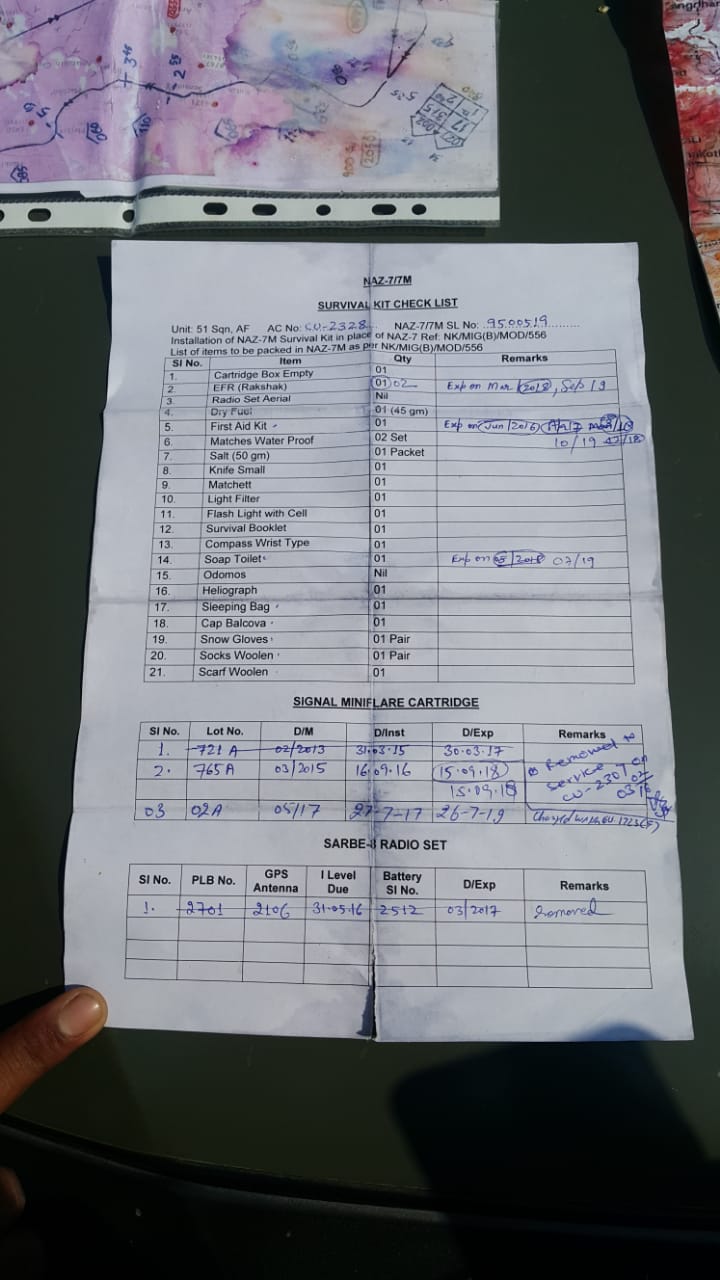 NAZ-7/7M
SURVIVAL KIT CHECK LIST
Unit: 51 Sqn, AF AC No: CU-2328 NAZ-7/7M SL No: 9500519
Installation of NAZ-7M Survival Kit in place of NAZ-7 Ref: NK/MIG(B)/MOD/556
List of items to be packed in NAZ-7M as per NK/MIG(B)/MOD/556
SI No. Item Qty Remarks
1. Cartridge Box Empty 01
2. EFR (Rakshak) 01 02 Exp on Mar 2018, Sep 19
3. Radio Set Aerial Nil
4. Dry Fuel 01 (45 gm)
5. First Aid Kit 01 Exp on Jun/2016
6. Matches Water Proof 02 Set 10/19
7. Salt (50 gm) 01 Packet
8. Knife Small 01
9. Matchett 01
10. Light Filter 01
11. Flash Light with Cell 01
12. Survival Booklet 01
13. Compass Wrist Type 01
14. Soap Toilet 01 Exp on 07/19
15. Odomos Nil
16. Heliograph 01
17. Sleeping Bag 01
18. Cap Balcova 01
19. Snow Gloves 01 Pair
20. Socks Woolen 01 Pair
21. Scarf Woolen 01
SIGNAL MINIFLARE CARTRIDGE
SI No. Lot No. D/M D/Inst D/Exp Remarks
1. 721 A 02/2013 31.03.15 30.03.17
2. 765A 03/2015 16.09.16 15.09.18 Removed to
15.09.18 service
CU-2307 on
03 02A 05/17 27-7-17 26-7-19
SARBE-8 RADIO SET
SI No. PLB No. GPS Antenna I Level Due Battery SI No. D/Exp Remarks
1. 2701 2106 31.05.16 2512 03/2017 Removed